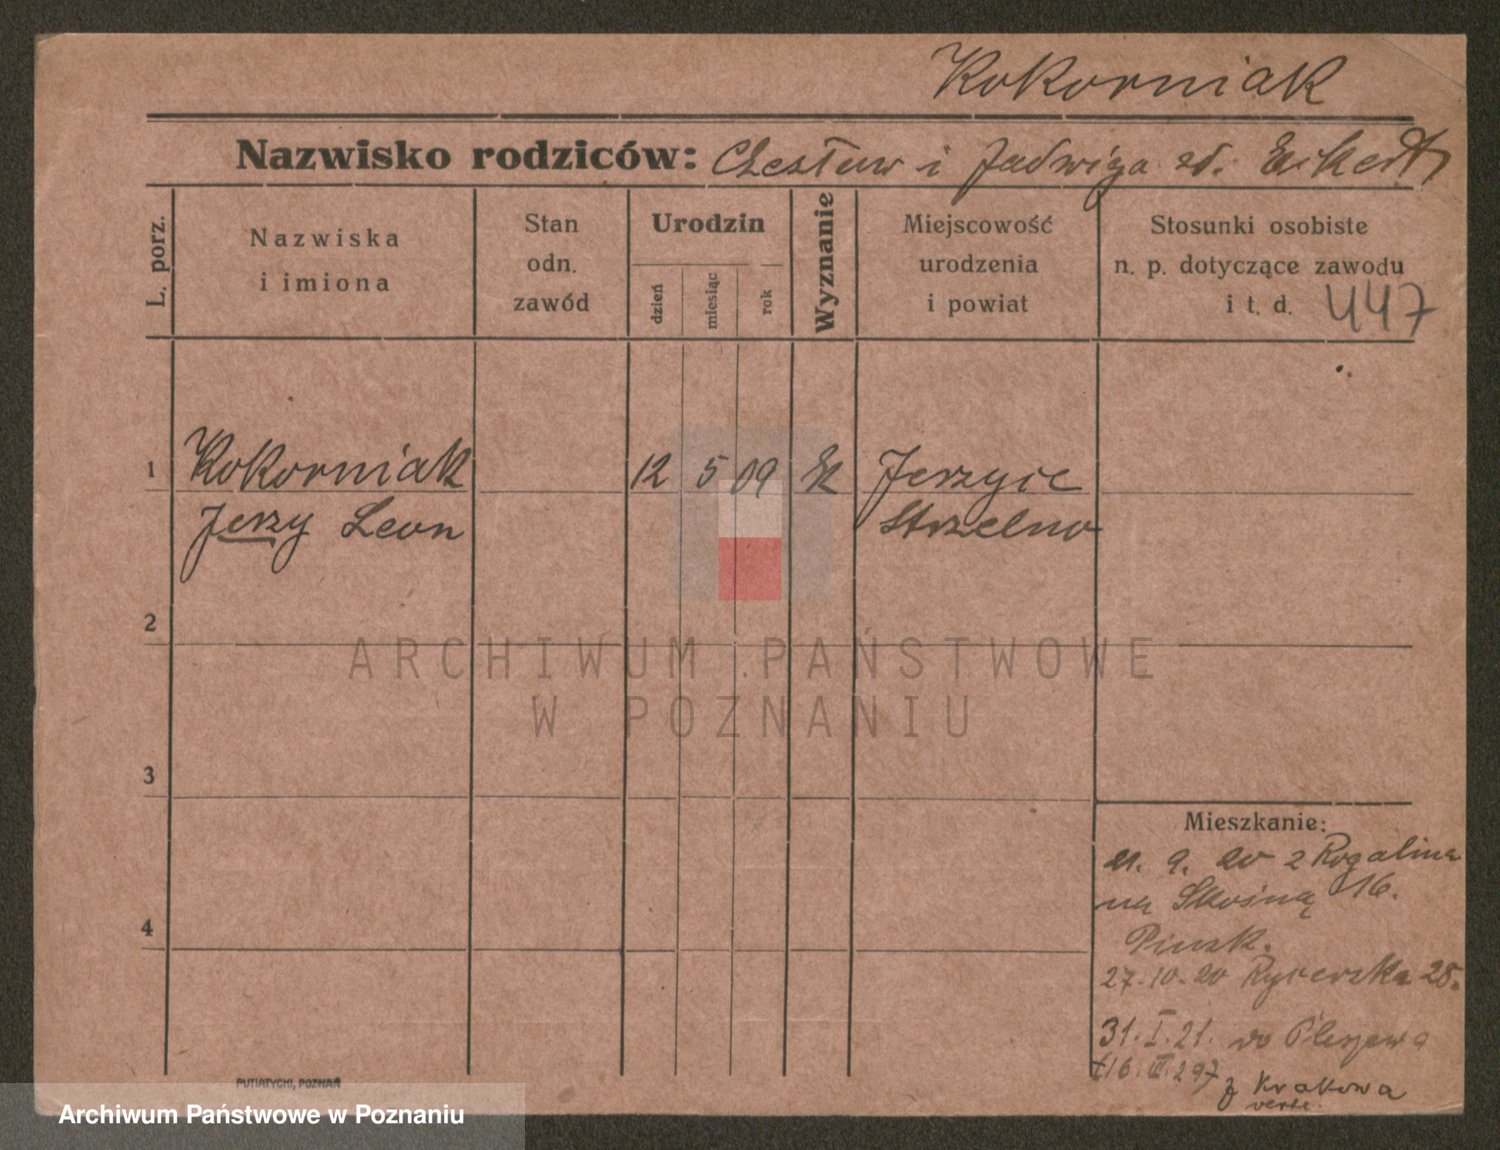 Kokorniak
Nazwisko rodziców: Czesław i Jadwiga zd. Eckert
L. porz.
Nazwiska
i imiona
Stan
odn.
zawód
Urodzin
dzień
miesiąc
rok
Wyznanie
Miejscowość
urodzenia
i powiat
Stosunki osobiste
n. p. dotyczące zawodu
i t. d. 447
1 Kokorniak 12 5 09 Jerzyce
Jerzy Leon Strzelno
2
3
4
Mieszkanie:
21. 9. 20 z Rogalina
na Skośną 16.
27-10-20 Rycerska 28.
31. I. 21. do Pleszewa
16. III. 297 z Krakowa
verte.
PUTIATYCKI, POZNAŃ
ARCHIWUM PAŃSTWOWE
W POZNANIU
Archiwum Państwowe w Poznaniu